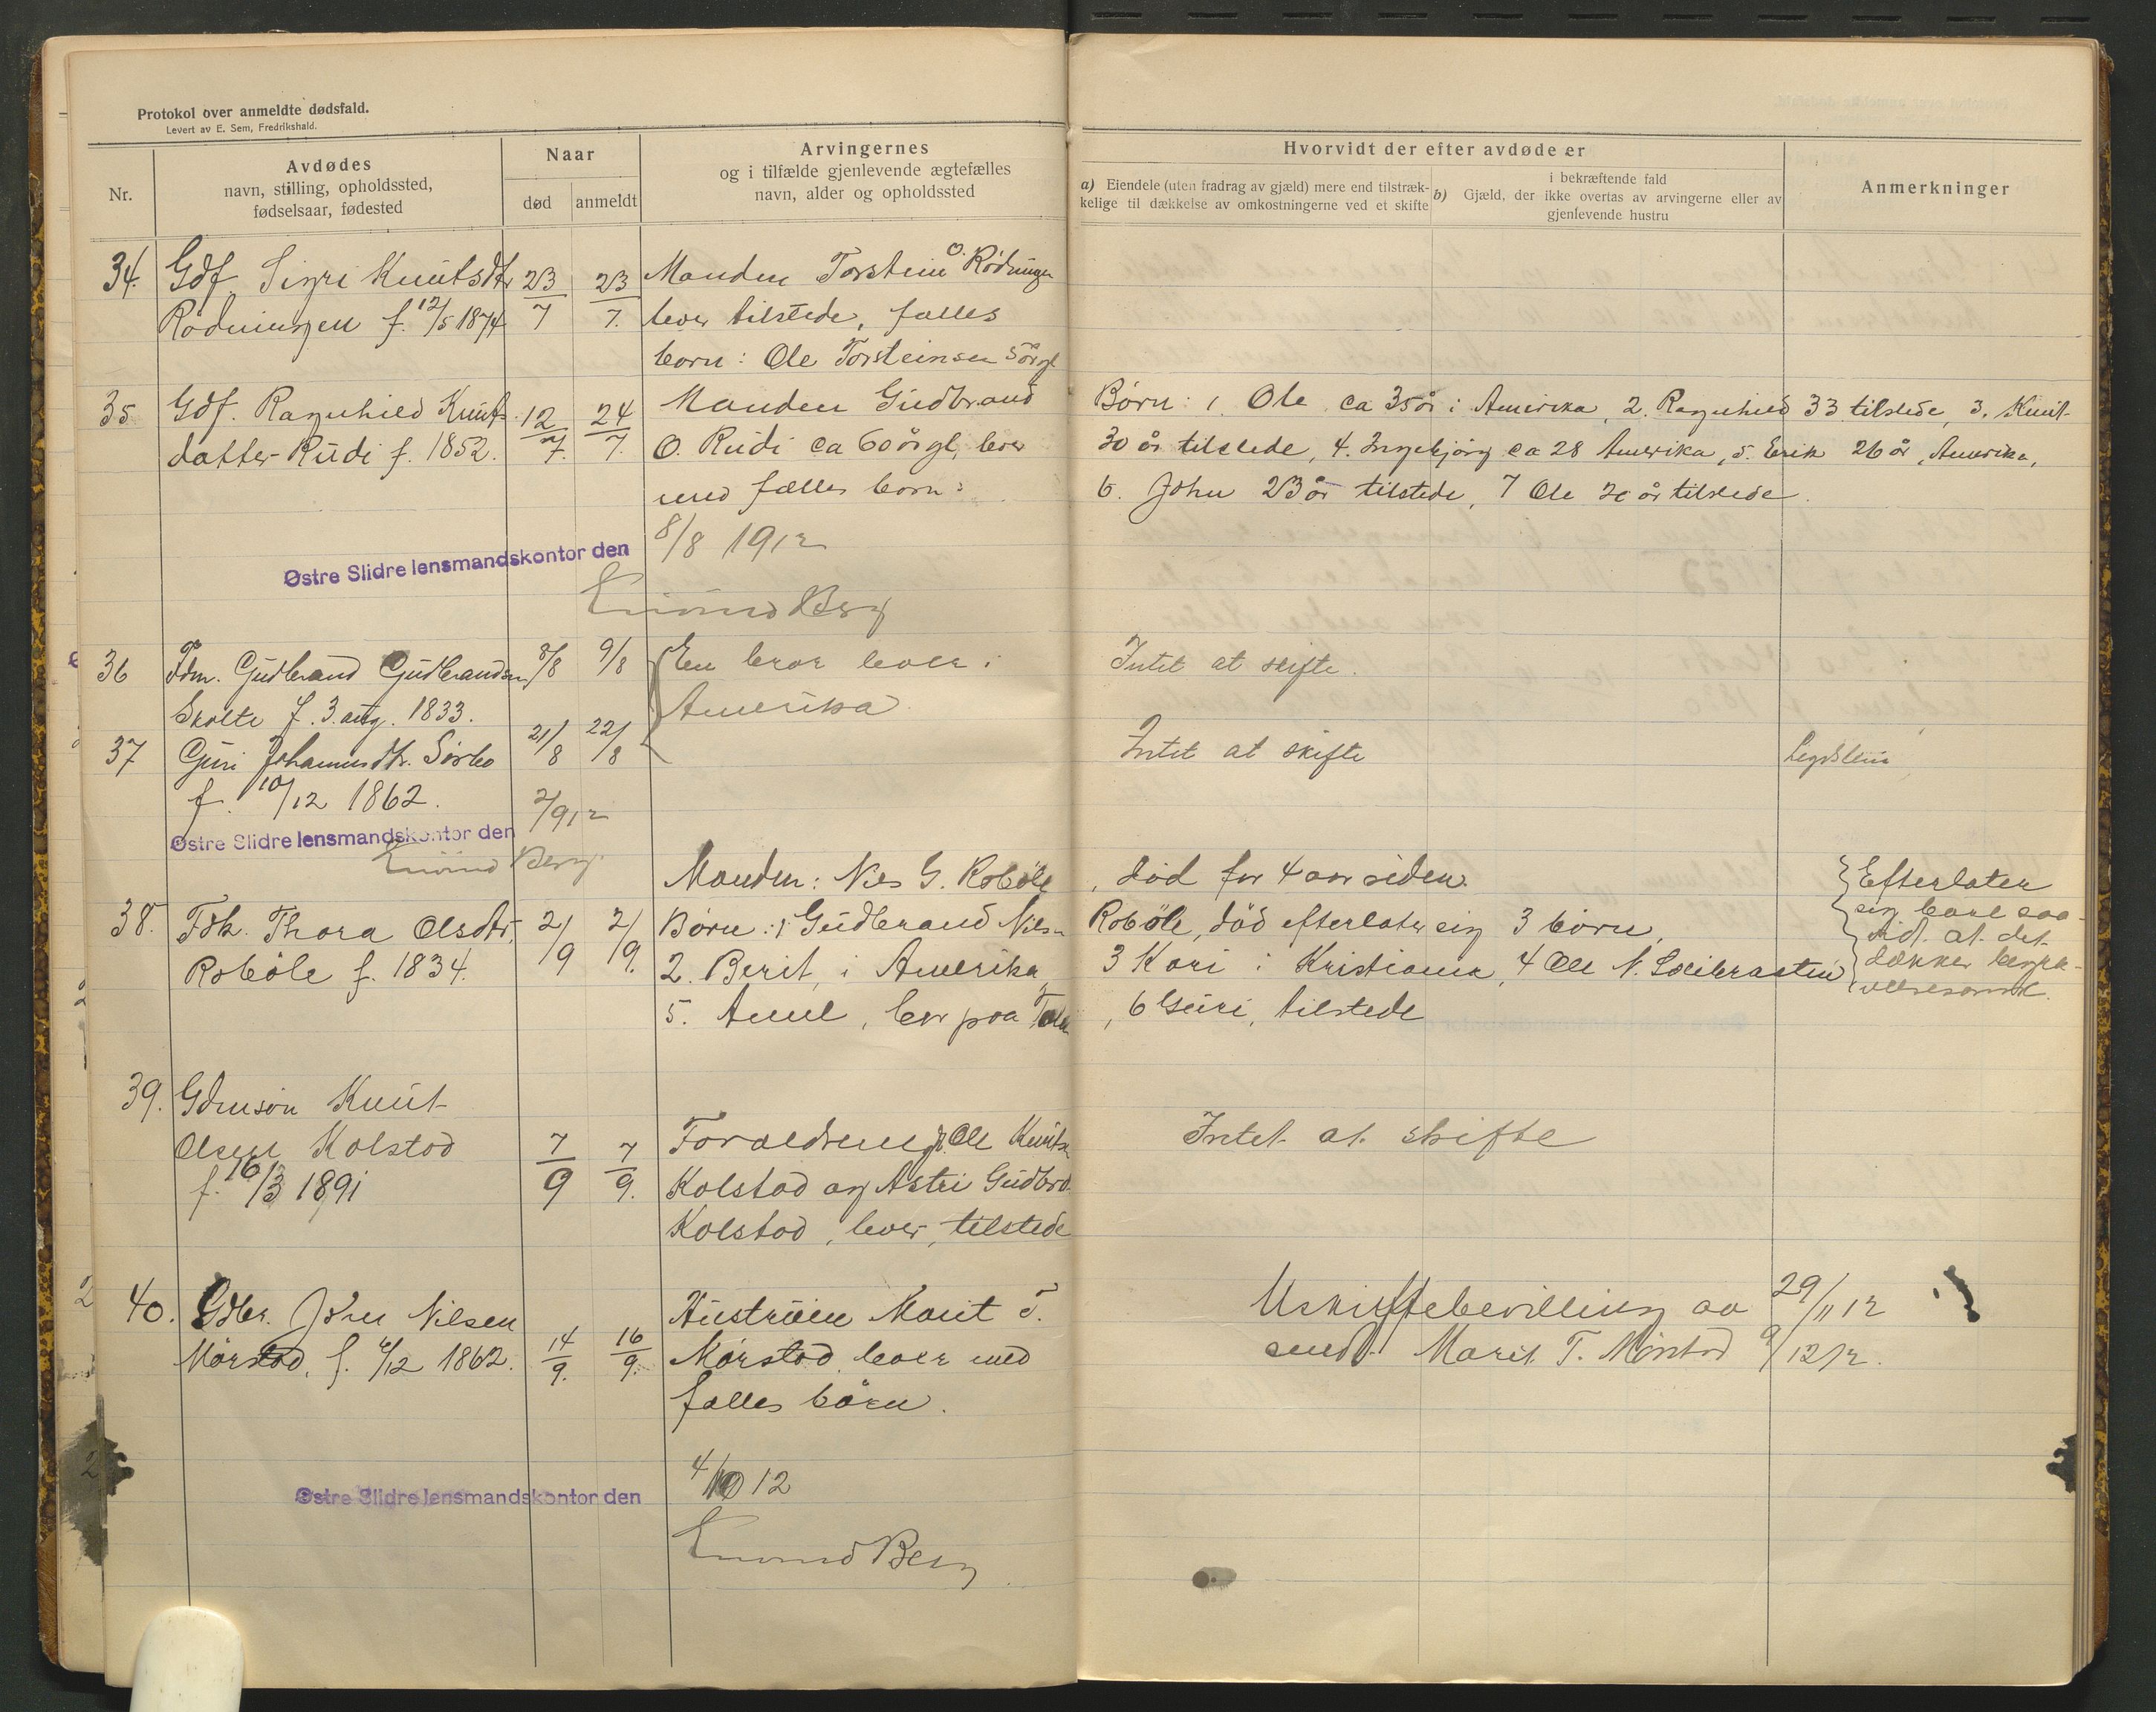 Protokol over anmeldte dødsfald.
Levert av E. Sem, Fredrikshald.
Nr.
Avdødes
navn, stilling, opholdssted,
fødselsaar, fødested
Naar
død
anmeldt
Arvingernes
og i tilfælde gjenlevende ægtefælles
navn, alder og opholdssted
Hvorvidt der efter avdøde er
a) Eiendele (uten fradrag av gjæld) mere end tilstræk-
kelige til dækkelse av omkostningerne ved et skifte
i bekræftende fald
b) Gjæld, der ikke overtas av arvingerne eller av
gjenlevende hustru
Anmerkninger
34. Gdf. Sigri Knutsdtr
Rødningen f. 12/5 1874
23/7
23/7.
Manden Torstein O. Rødningen
lever tilstede, fælles
born: Ole Torsteinsen 5 år gl
35 Gdf. Ragnhild Knuts-
datter Rudi f. 1852.
12/7.
24/7.
Manden Gudbrand
O. Rudi ca 60 år gl, lever
med fælles born:
Børn: 1. Ole ca 35 år i Amerika, 2. Ragnhild 33 tilstede, 3. Knut
30 år tilstede, 4. Ingebjørg ca 28 Amerika, 5. Erik 26 år, Amerika,
6. John 23 år tilstede, 7 Ole 20 år tilstede.
Østre Slidre lensmandskontor den
8/8 1912
Eivind Berg
36 Fdm. Gudbrand Gudbrandsen
Skolte f. 3. aug. 1833.
8/8
9/8
En bror lever i
Amerika
Intet at skifte.
37 Guri Johannesdtr. Sørbo
f. 10/12 1862.
21/8
22/8
Intet at skifte
Legdslem
Østre Slidre lensmandskontor den
2/9 12
Eivind Berg.
38. Fdk. Thora Olsdtr.
Roböle f. 1834.
2/9
2/9.
Manden: Nils G. Roböle, død for 4 aar siden.
Børn: 1 Gudbrand Nilsen Roböle, död efterlater sig 3 börn,
2. Berit, i Amerika, 3 Kari i Kristiania, 4 Ole N.
5. Anne, bor paa, 6 Guri, tilstede
Efterlater
sig bare saa
vidt at det
dækker begra-
velsesomk.
39. Gdmsön Knut
Olsen Kolstad
f. 16/3 1891
7/9
7/9.
Forældrene G. Ole Knutsen
Kolstad og Astri Gudbrd.
Kolstad, lever, tilstede
Intet at skifte
40. Gdbr. John Nilsen
Mørstad, f. 6/12 1862.
14/9.
16/9.
Hustruen Marit T.
Mørstad lever med
fælles börn.
Uskiftebevilling av 29/11 12
sendt Marit T. Mørstad 9/12 12.
Østre Slidre lensmandskontor den
4/10 12
Eivind Berg